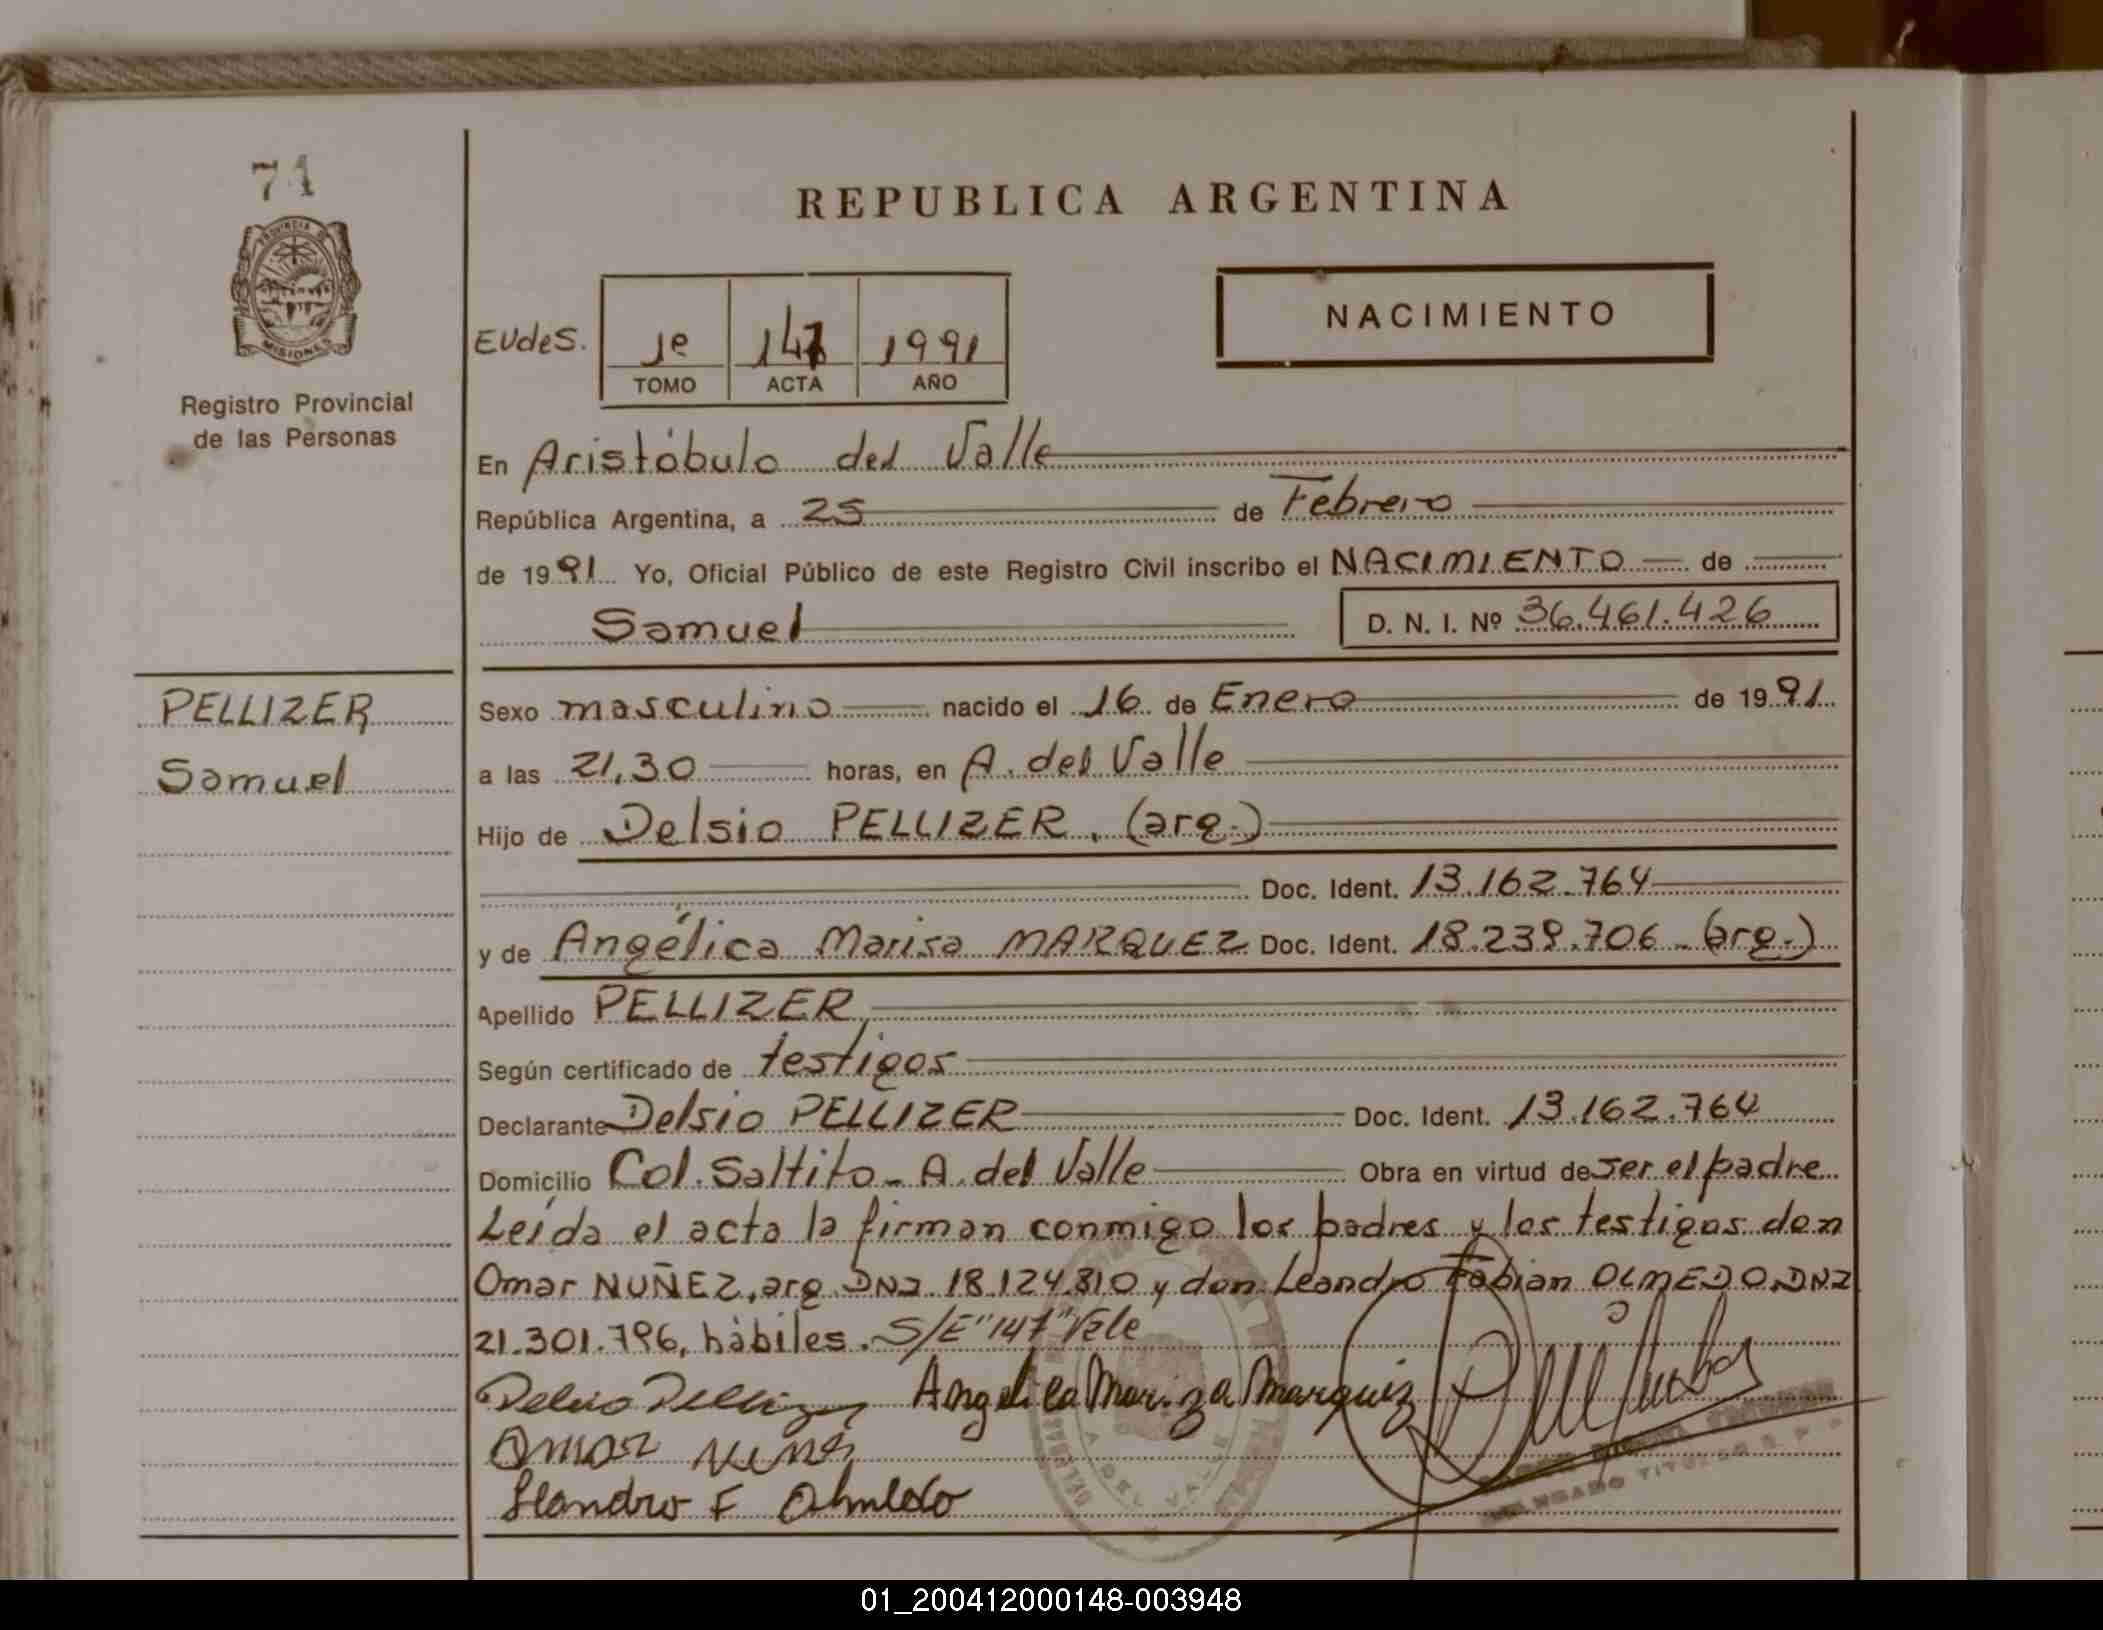 74
REPUBLICA ARGENTINA
PROVINCIA DE
MISIONES
NACIMIENTO
EUdeS. 1e 147 1991
TOMO ACTA AÑO
Registro Provincial
de las Personas
En Aristóbulo del Valle
República Argentina, a 25 de Febrero
de 1991 Yo, Oficial Público de este Registro Civil inscribo el NACIMIENTO de
Samuel D. N. I. Nº 36.461.426
PELLIZER
Samuel
Sexo masculino nacido el 16 de Enero de 1991
a las 21,30 horas, en A. del Valle
Hijo de Delsio PELLIZER. (arg.)
Doc. Ident. 13.162.764
y de Angélica Marisa MARQUEZ Doc. Ident. 18.239.706 - (arg.)
Apellido PELLIZER
Según certificado de testigos
Declarante Delsio PELLIZER Doc. Ident. 13.162.764
Domicilio Col. Saltito - A. del Valle Obra en virtud de ser el padre
Leída el acta la firman conmigo los padres y los testigos don
Omar NUÑEZ, arg. DNI. 18.124.810 y don Leandro Fabian OLMEDO. DNI
21.301.796, hábiles. S/E "147" Vale
Delsio Pellizer Angelica Mariza Marquiz
Omar Nuñes
Leandro F Olmedo
A. DEL VALLE
TITULAR
01_200412000148-003948